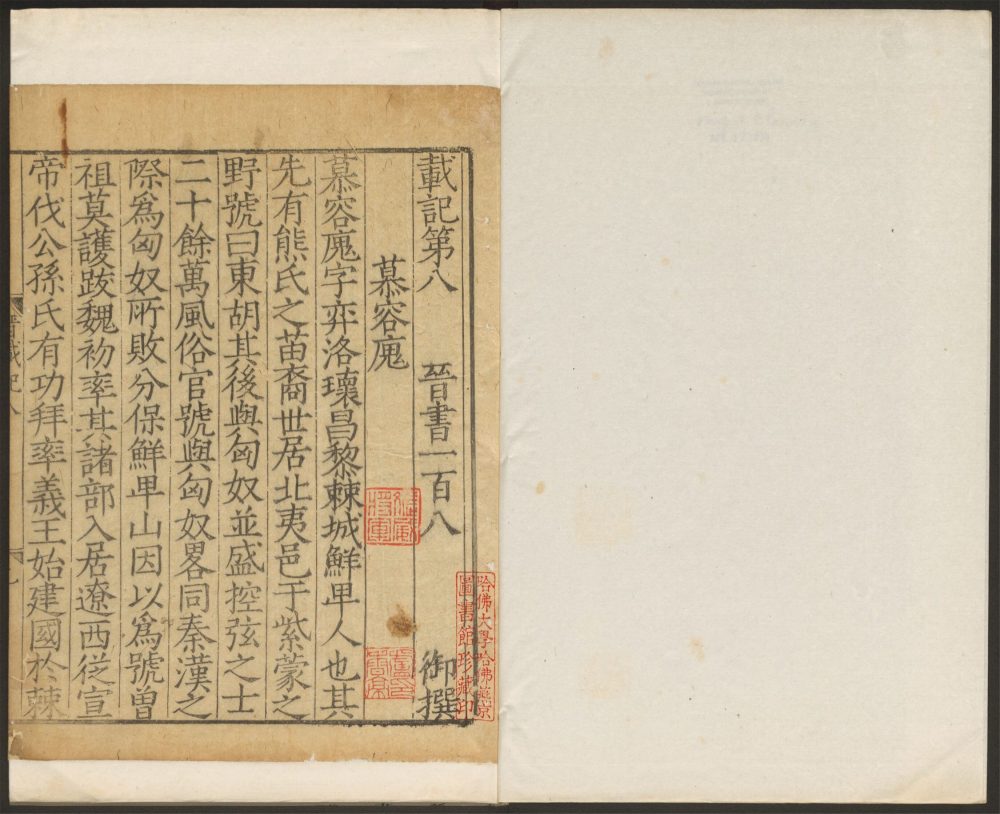 載記第八 晉書一百八 御撰
慕容廆
慕容廆字弈洛瓌昌黎棘城鮮卑人也其
先有熊氏之苗裔世居北夷邑于紫蒙之
野號曰東胡其後與匈奴並盛控弦之士
二十餘萬風俗官號與匈奴畧同秦漢之
際爲匈奴所敗分保鮮卑山因以爲號曽
祖莫護跋魏初率其諸部入居遼西從宣
帝伐公孫氏有功拜率義王始建國於棘
哈佛大學哈佛燕京
圖書館珍藏印